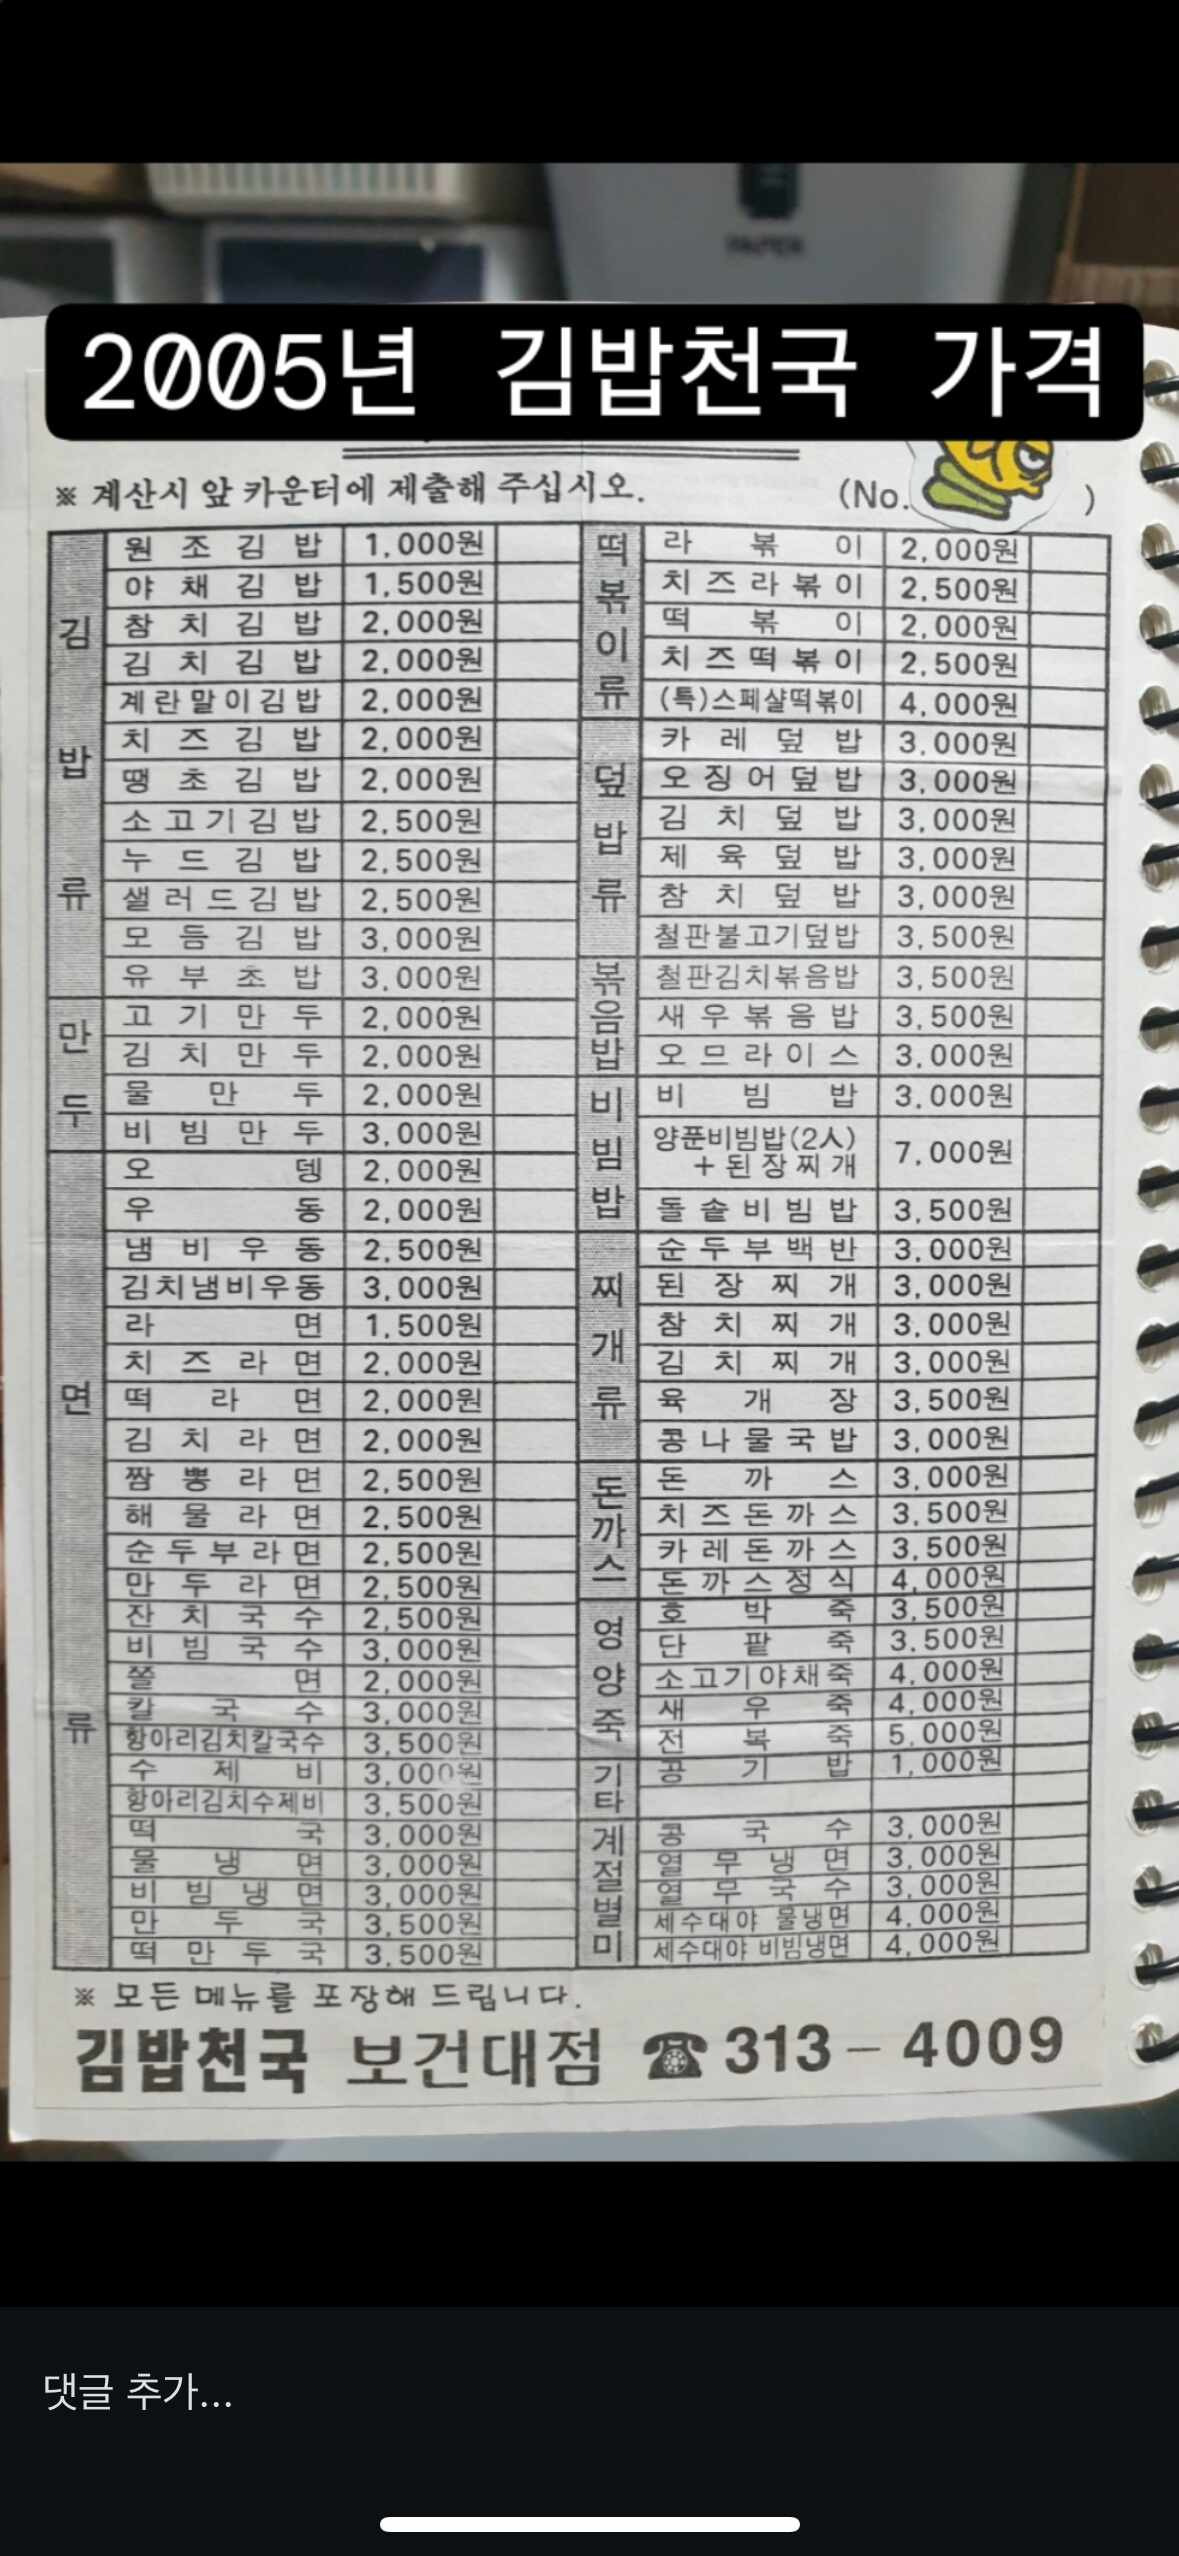 PAPER
2005년 김밥천국 가격
※ 계산시 앞 카운터에 제출해 주십시오. (No. )
김밥류
원조김밥 1,000원
야채김밥 1,500원
참치김밥 2,000원
김치김밥 2,000원
계란말이김밥 2,000원
치즈김밥 2,000원
땡초김밥 2,000원
소고기김밥 2,500원
누드김밥 2,500원
샐러드김밥 2,500원
모듬김밥 3,000원
유부초밥 3,000원
만두
고기만두 2,000원
김치만두 2,000원
물만두 2,000원
비빔만두 3,000원
면류
오뎅 2,000원
우동 2,000원
냄비우동 2,500원
김치냄비우동 3,000원
라면 1,500원
치즈라면 2,000원
떡라면 2,000원
김치라면 2,000원
짬뽕라면 2,500원
해물라면 2,500원
순두부라면 2,500원
만두라면 2,500원
잔치국수 2,500원
비빔국수 3,000원
쫄면 2,000원
칼국수 3,000원
항아리김치칼국수 3,500원
수제비 3,000원
항아리김치수제비 3,500원
떡국 3,000원
물냉면 3,000원
비빔냉면 3,000원
만두국 3,500원
떡만두국 3,500원
떡볶이류
라볶이 2,000원
치즈라볶이 2,500원
떡볶이 2,000원
치즈떡볶이 2,500원
(특)스페샬떡볶이 4,000원
덮밥류
카레덮밥 3,000원
오징어덮밥 3,000원
김치덮밥 3,000원
제육덮밥 3,000원
참치덮밥 3,000원
철판불고기덮밥 3,500원
볶음밥
철판김치볶음밥 3,500원
새우볶음밥 3,500원
오므라이스 3,000원
비빔밥
비빔밥 3,000원
양푼비빔밥(2人)
+된장찌개 7,000원
돌솥비빔밥 3,500원
찌개류
순두부백반 3,000원
된장찌개 3,000원
참치찌개 3,000원
김치찌개 3,000원
육개장 3,500원
콩나물국밥 3,000원
돈까스
돈까스 3,000원
치즈돈까스 3,500원
카레돈까스 3,500원
돈까스정식 4,000원
영양죽
호박죽 3,500원
단팥죽 3,500원
소고기야채죽 4,000원
새우죽 4,000원
전복죽 5,000원
기타
공기밥 1,000원
계절별미
콩국수 3,000원
열무냉면 3,000원
열무국수 3,000원
세수대야 물냉면 4,000원
세수대야 비빔냉면 4,000원
※ 모든 메뉴를 포장해 드립니다.
김밥천국 보건대점 ☎313-4009
댓글 추가...